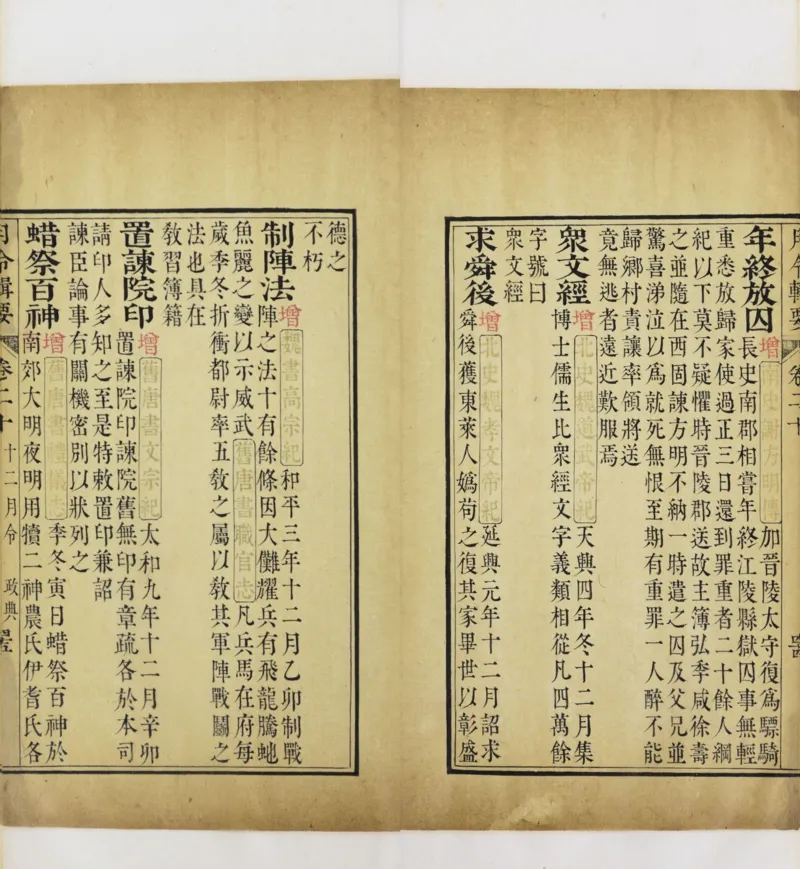 月令輯要 卷二十
年終放囚 增 南史謝方明傳 加晉陵太守復爲驃騎
長史南郡相嘗年終江陵縣獄囚事無輕
重悉放歸家使過正三日還到罪重者二十餘人綱
紀以下莫不疑懼時晉陵郡送故主簿弘季咸徐壽
之並隨在西固諫方明不納一時遣之囚及父兄並
驚喜涕泣以爲就死無恨至期有重罪一人醉不能
歸鄉村責讓率領將送
竟無逃者遠近歎服焉
衆文經 增 北史魏道武帝紀 天興四年冬十二月集
博士儒生比衆經文字義類相從凡四萬餘
字號曰
衆文經
求舜後 增 北史魏孝文帝紀 延興元年十二月詔求
舜後獲東萊人嬀苟之復其家畢世以彰盛
德之
不朽
制陣法 增 魏書高宗紀 和平三年十二月乙卯制戰
陣之法十有餘條因大儺耀兵有飛龍騰虵
魚麗之變以示威武 舊唐書職官志 凡兵馬在府每
歲季冬折衝都尉率五教之屬以教其軍陣戰鬭之
法也具在
教習簿籍
置諫院印 增 舊唐書文宗紀 太和九年十二月辛卯
置諫院印諫院舊無印有章疏各於本司
請印人多知之至是特敕置印兼詔
諫臣論事有關機密別以狀列之
蜡祭百神 增 舊唐書禮儀志 季冬寅日蜡祭百神於
南郊大明夜明用犢二神農氏伊耆氏各
月令輯要 卷二十 十二月令 政典